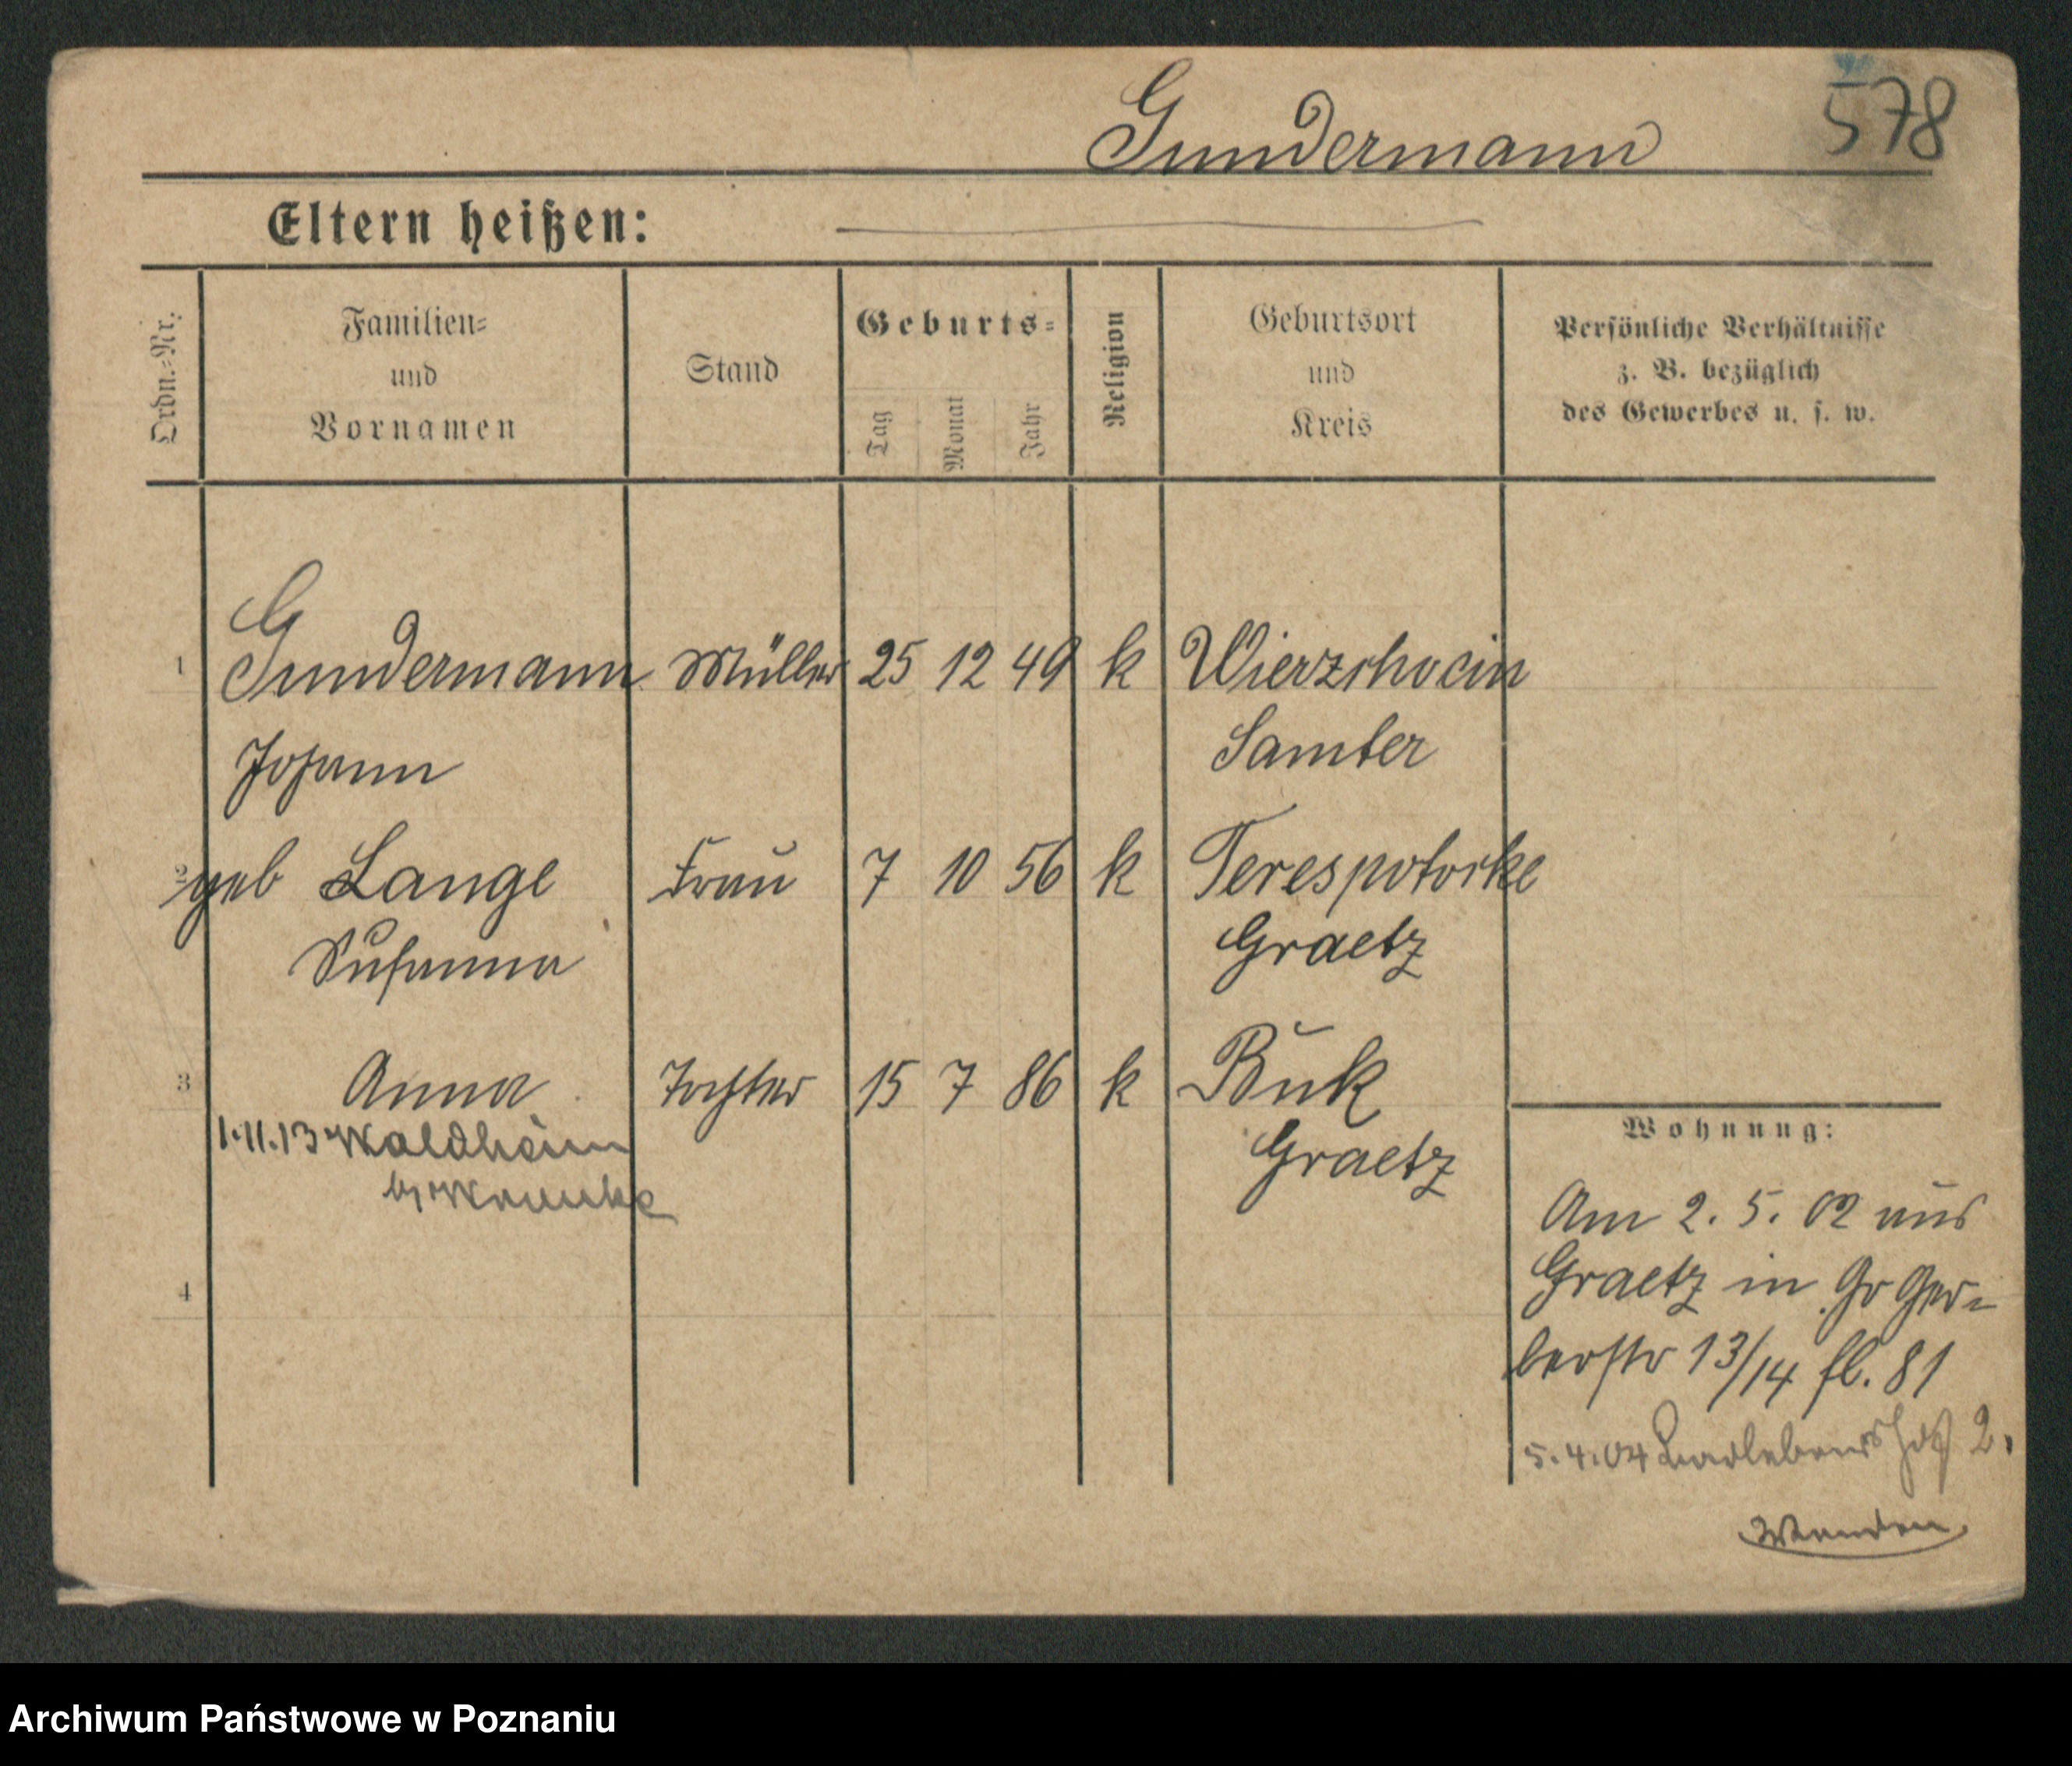 Gundermann
578
Eltern heißen:
Ordn.-Nr.
Familien-
und
Vornamen
Stand
Geburts-
Tag
Monat
Jahr
Religion
Geburtsort
und
Kreis
Persönliche Verhältnisse
z. B. bezüglich
des Gewerbes u. s. w.
1 Gundermann Müller 25 12 49 k Wierzchocin
Johann Samter
2 geb Lange Frau 7 10 56 k Terespotocke
Susanna Graetz
3 Anna Tochter 15 7 86 k Buk
Graetz
1.11.13 Waldheim
4
Wohnung:
Am 2. 5. 02 aus
Graetz in Gr Ger-
berstr 13/14 fl. 81
5.4.04 2.
Wenden
Archiwum Państwowe w Poznaniu